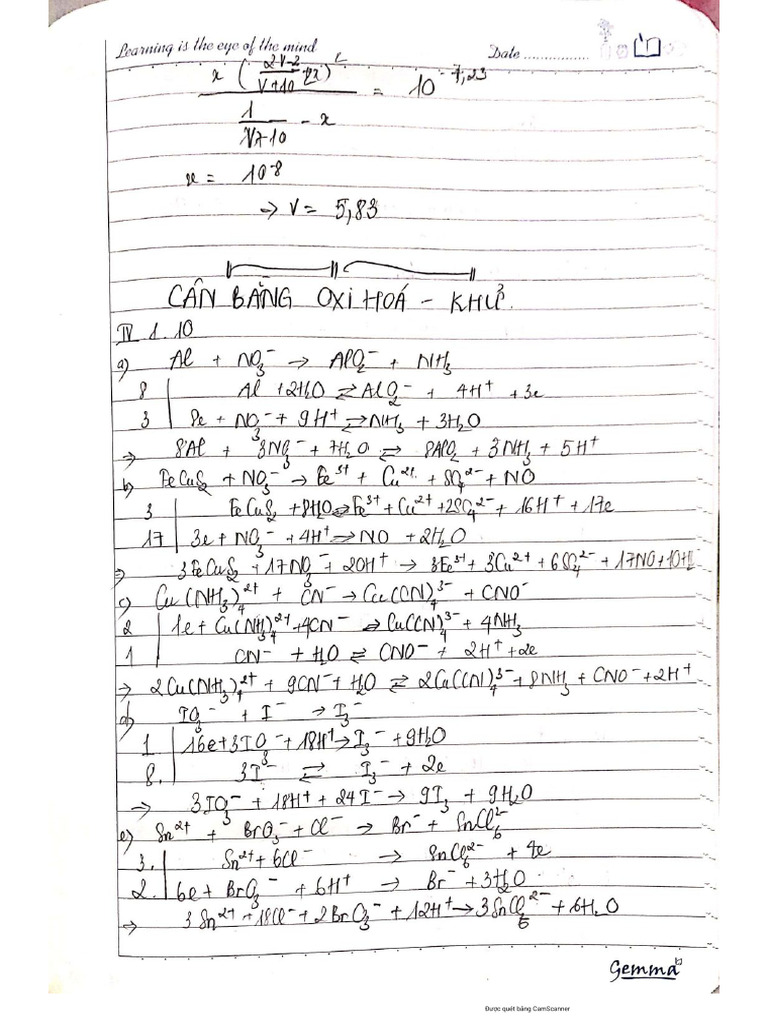 Learning is the eye of the mind Date ................
x ( (2V-2)/(V+10) + 2x )² / ( 1/(V+10) - x ) = 10^-7,23
x = 10^-8
→ V = 5,83
CÂN BẰNG OXI HOÁ - KHỬ.
IV 1.10
a) Al + NO3^- → AlO2^- + NH3
8 | Al + 2H2O ⇌ AlO2^- + 4H^+ + 3e
3 | 8e + NO3^- + 9H^+ ⇌ NH3 + 3H2O
→ 8Al + 3NO3^- + 7H2O ⇌ 8AlO2 + 3NH3 + 5H^+
b) FeCuS2 + NO3^- → Fe^3+ + Cu^2+ + SO4^2- + NO
3 | FeCuS2 + 8H2O ⇌ Fe^3+ + Cu^2+ + 2SO4^2- + 16H^+ + 17e
17 | 3e + NO3^- + 4H^+ → NO + 2H2O
⇒ 3FeCuS2 + 17NO3^- + 20H^+ → 3Fe^3+ + 3Cu^2+ + 6SO4^2- + 17NO + 10H2
c) Cu(NH3)4^2+ + CN^- → Cu(CN)4^3- + CNO^-
2 | 1e + Cu(NH3)4^2+ + 4CN^- ⇌ Cu(CN)4^3- + 4NH3
1 | CN^- + H2O ⇌ CNO^- + 2H^+ + 2e
→ 2Cu(NH3)4^2+ + 9CN^- + H2O ⇌ 2Cu(CN)4^3- + 8NH3 + CNO^- + 2H^+
d) IO3^- + I^- → I3^-
1 | 16e + 3IO3^- + 18H^+ → I3^- + 9H2O
8. | 3I^- ⇌ I3^- + 2e
→ 3IO3^- + 18H^+ + 24I^- → 9I3^- + 9H2O
e) Sn^2+ + BrO3^- + Cl^- → Br^- + SnCl6^2-
3. | Sn^2+ + 6Cl^- → SnCl6^2- + 4e
2. | 6e + BrO3^- + 6H^+ → Br^- + 3H2O
→ 3Sn^2+ + 18Cl^- + 2BrO3^- + 12H^+ → 3SnCl6^2- + 6H2O
Gemma
Được quét bằng CamScanner